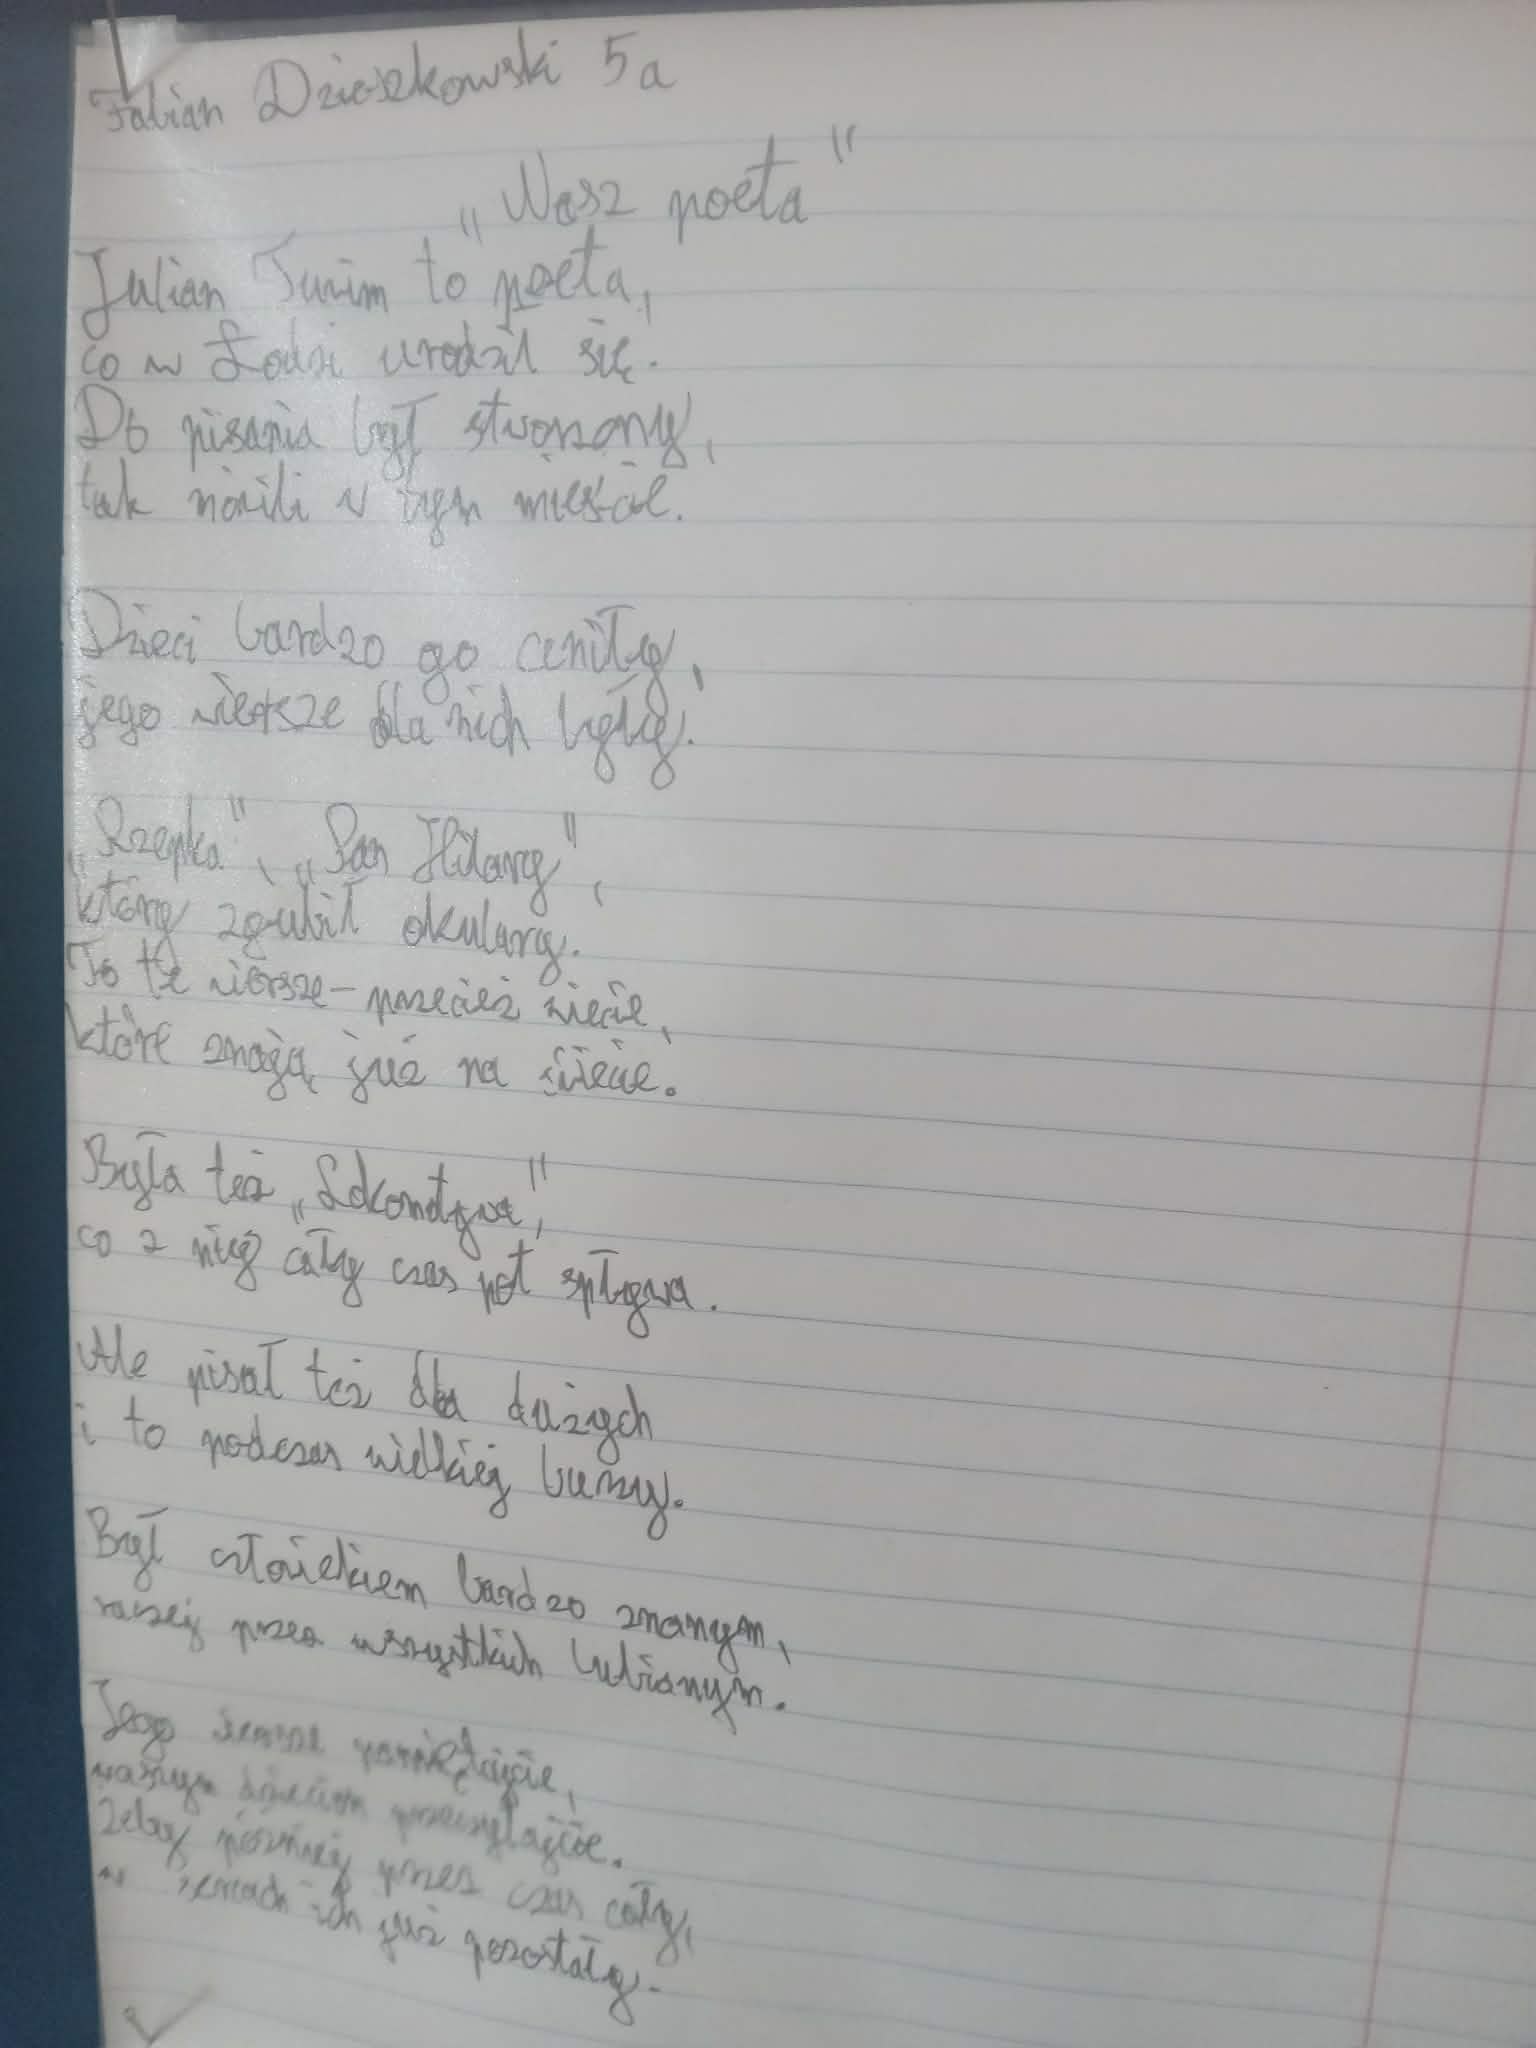 Fabian 5a
„Wasz poeta"
Julian Tuwim to poeta,
co w Łodzi urodził się.
Do pisania był stworzony,
tak mówili w tym mieście.
Dzieci bardzo go ceniły,
jego wiersze dla nich były.
„Rzepka", „Pan Hilary",
który zgubił okulary.
To te wiersze - przecież wiecie,
które znają już na świecie.
Była też „Lokomotywa",
co z niej cały czas pot spływa.
Ale pisał też dla dużych
i to podczas wielkiej burzy.
Był człowiekiem bardzo znanym,
raczej przez wszystkich lubianym.
Jego wiersze pamiętajcie,
waszym dzieciom przesyłajcie.
Żeby później przez czas cały,
w sercach ich już pozostały.